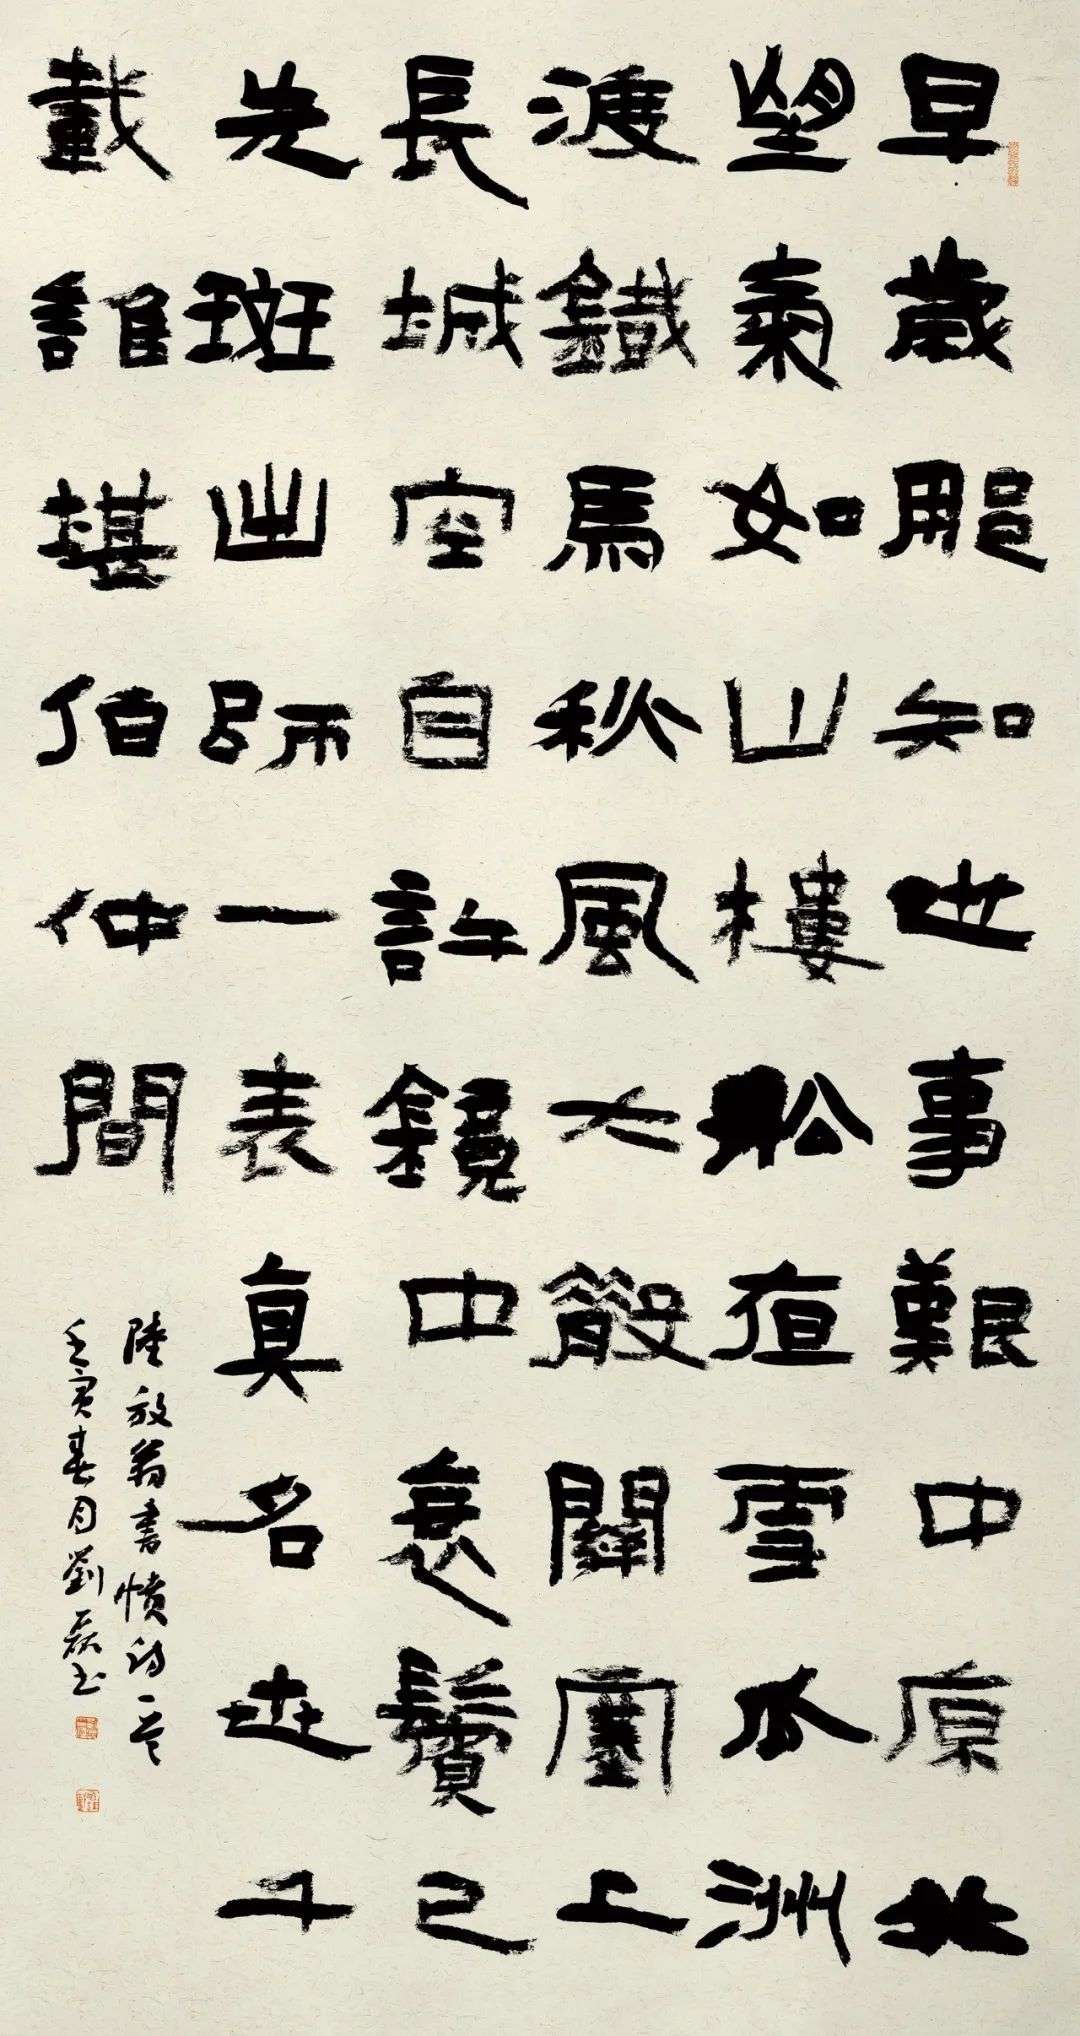 早歲那知世事艱中原北
望氣如山樓船夜雪瓜洲
渡鐵馬秋風大散關塞上
長城空自許鏡中衰鬢已
先斑出師一表真名世千
載誰堪伯仲間
陸放翁書憤詩一首
壬寅春月劉磊書